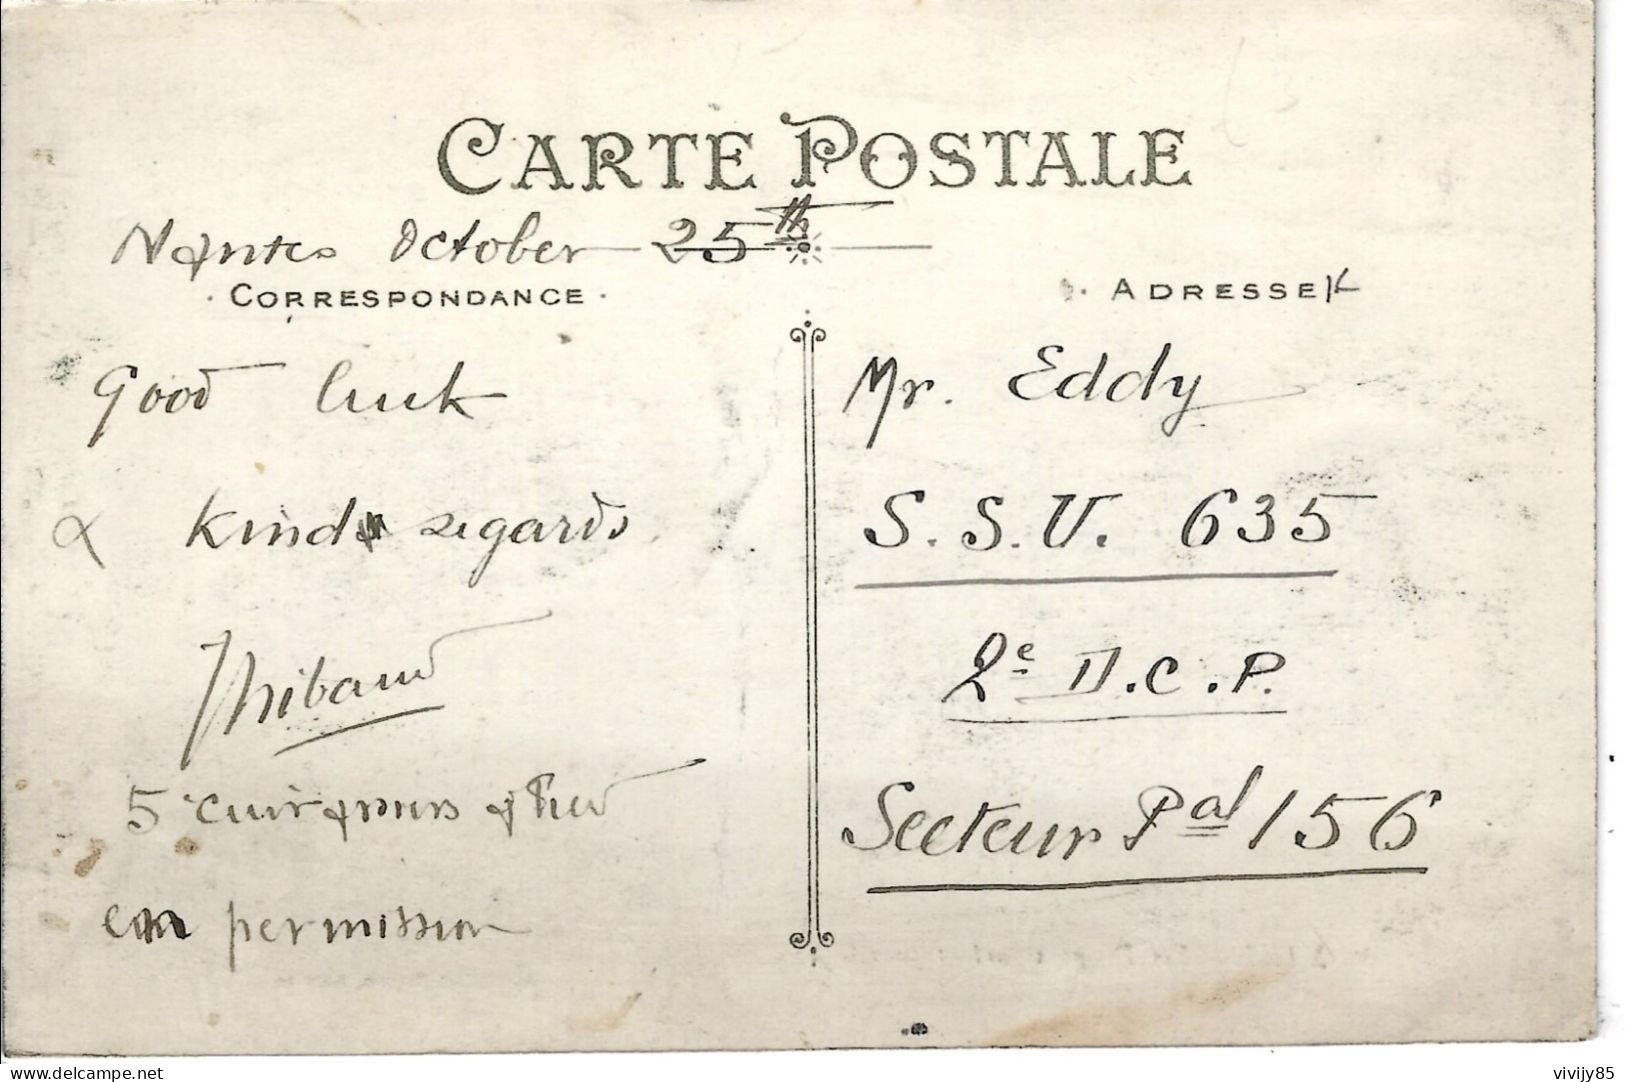 CARTE POSTALE
Nantes October 25th
CORRESPONDANCE
ADRESSE
Good luck
& Kind regards
Thibaud
5e cuirassiers à Pied
en permission
Mr. Eddy
S.S.U. 635
2e D.C.P.
Secteur Pal 156
delcampe.net
vivijy85